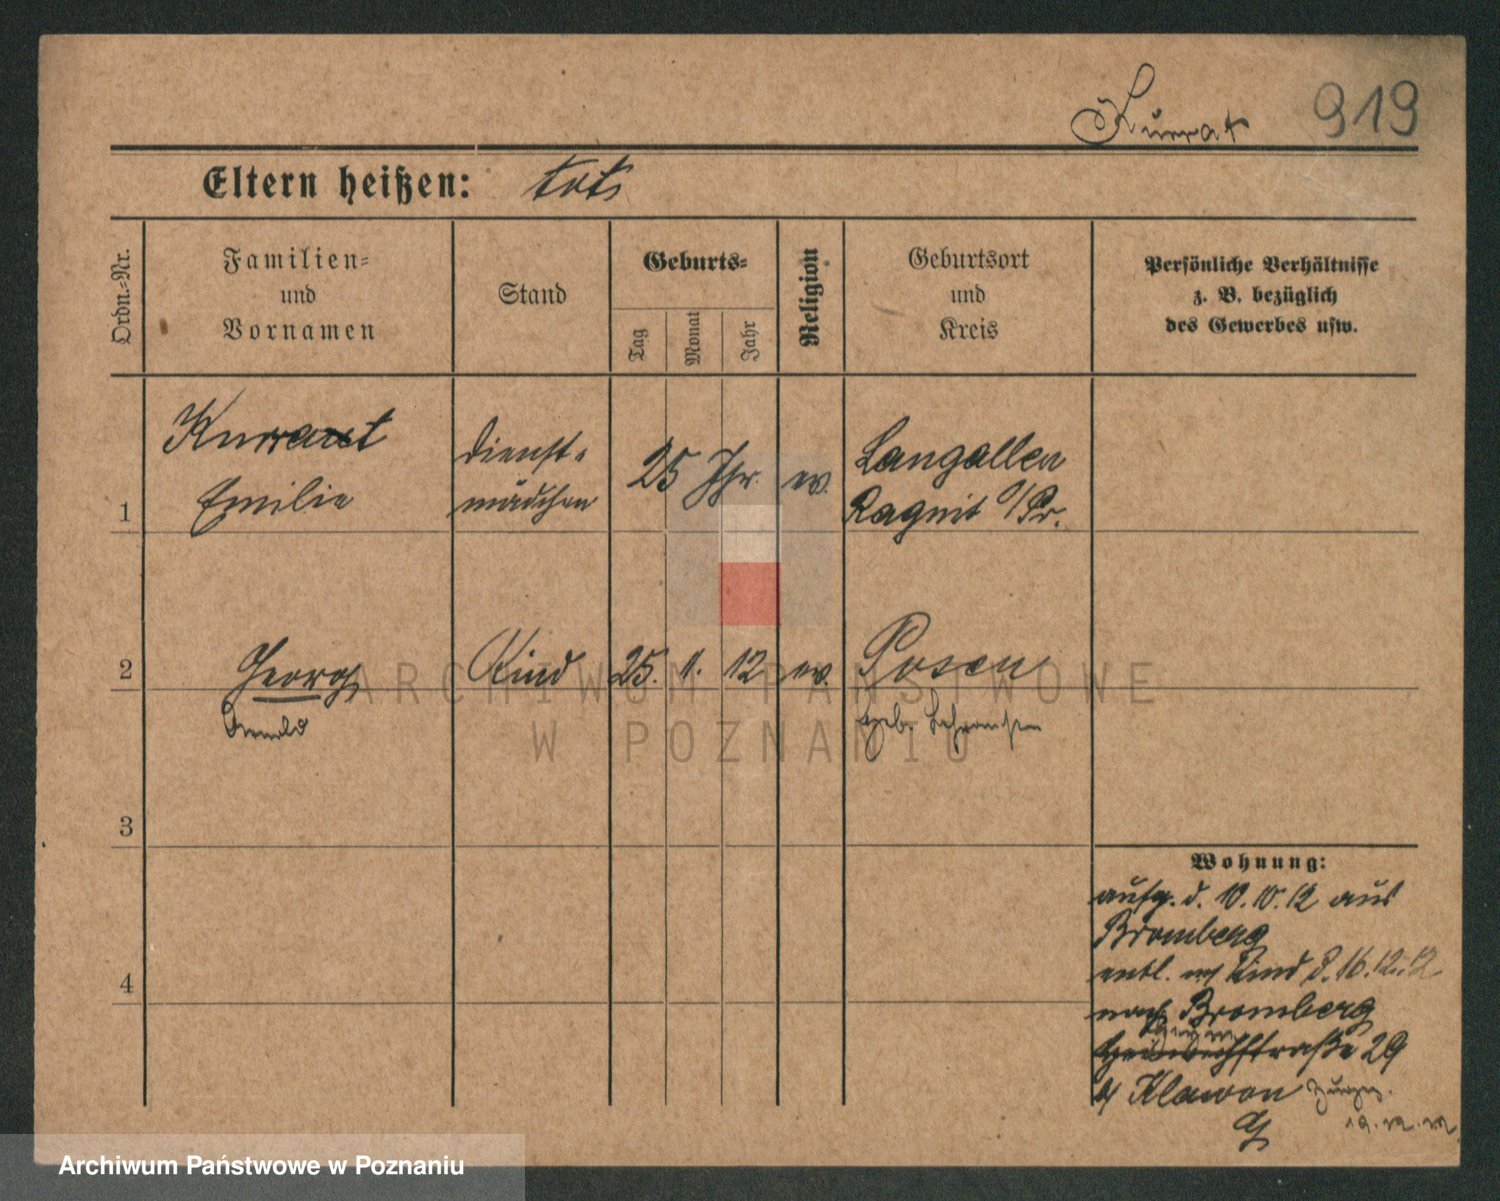 Kurrat 919
Eltern heißen: tot
Ordn.-Nr.
Familien-
und
Vornamen
Stand
Geburts-
Tag
Monat
Jahr
Religion
Geburtsort
und
Kreis
Persönliche Verhältnisse
z. B. bezüglich
des Gewerbes usw.
1
Kurrat
Emilie
Dienst-
mädchen
25 Jhr.
ev.
Langallen
Ragnit O/Pr.
2
Georg
Arnold
Kind
25. 11. 12
ev.
Posen
Hebr. Lehranstalt
3
4
Wohnung:
aufg. d. 10. 10. 12 aus
Bromberg
entl. m/ Kind d. 16.12.12
nach Bromberg
straße 29
b/ Klawon
19.12.12
ARCHIWUM PAŃSTWOWE
W POZNANIU
Archiwum Państwowe w Poznaniu